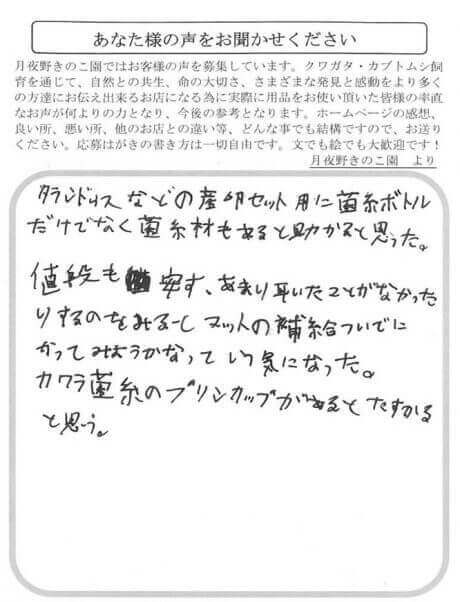 あなた様の声をお聞かせください
月夜野きのこ園ではお客様の声を募集しています。クワガタ・カブトムシ飼
育を通じて、自然との共生、命の大切さ、さまざまな発見と感動をより多く
の方達にお伝え出来るお店になる為に実際に用品をお使い頂いた皆様の率直
なお声が何よりの力となり、今後の参考となります。ホームページの感想、
良い所、悪い所、他のお店との違い等、どんな事でも結構ですので、お送り
ください。応募はがきの書き方は一切自由です。文でも絵でも大歓迎です！
月夜野きのこ園 より
タランドゥスなどの産卵セット用に菌糸ボトル
だけでなく菌糸材もあると助かると思った。
値段も安す、あまり耳いたことがなかった
りするのをみるーし マットの補給ついでに
かってみようかなって いう気になった。
カワラ菌糸のプリンカップがあるとたすかる
と思う。